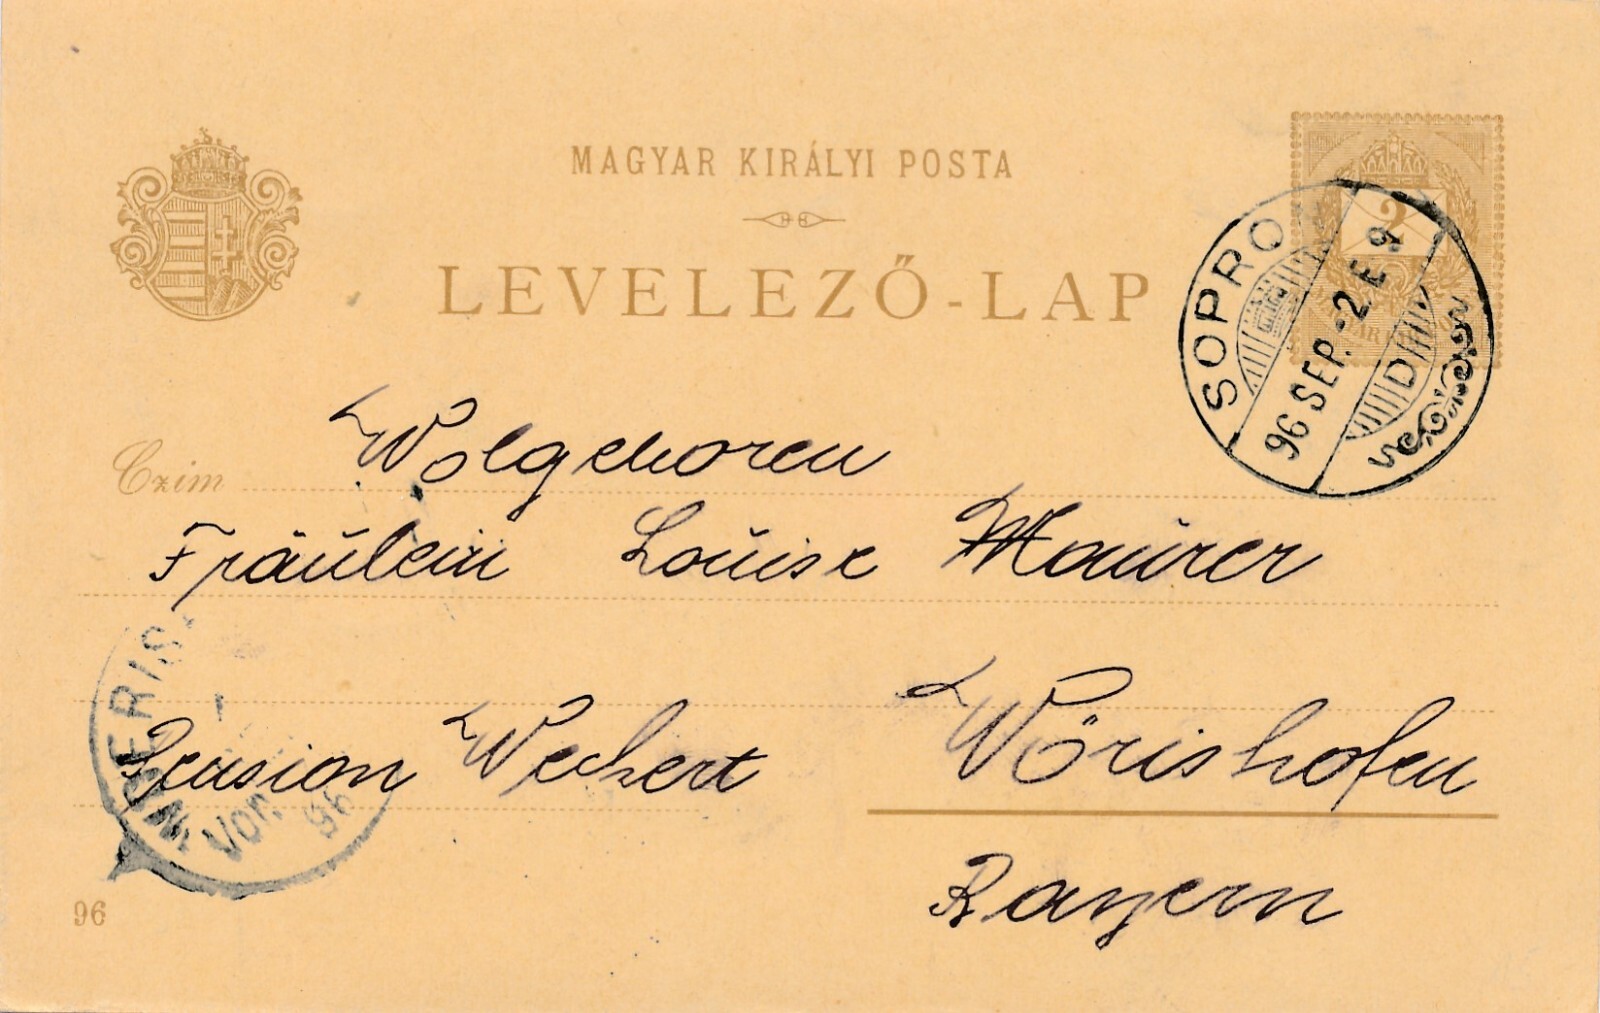 MAGYAR KIRÁLYI POSTA
LEVELEZŐ-LAP
2
SOPRO
96 SEP. 2. E 9
D
Czim
Wolgeboren
Fräulein Louise Maurer
Pension Weckert
Wörishofen
Bayern
WOERIS
VOR
96
96